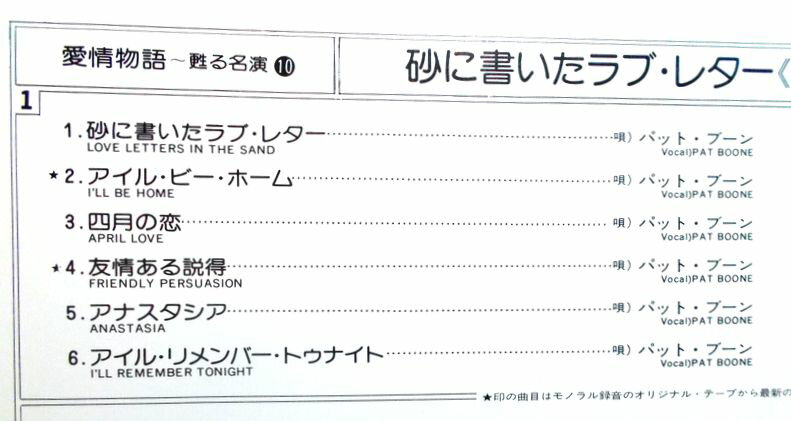 愛情物語～甦る名演❿
砂に書いたラブ・レター《
1
1.砂に書いたラブ・レター……唄）パット・ブーン
LOVE LETTERS IN THE SAND Vocal)PAT BOONE
★2.アイル・ビー・ホーム……唄）パット・ブーン
I'LL BE HOME Vocal)PAT BOONE
3.四月の恋……唄）パット・ブーン
APRIL LOVE Vocal)PAT BOONE
★4.友情ある説得……唄）パット・ブーン
FRIENDLY PERSUASION Vocal)PAT BOONE
5.アナスタシア……唄）パット・ブーン
ANASTASIA Vocal)PAT BOONE
6.アイル・リメンバー・トゥナイト……唄）パット・ブーン
I'LL REMEMBER TONIGHT Vocal)PAT BOONE
★印の曲目はモノラル録音のオリジナル・テープから最新の